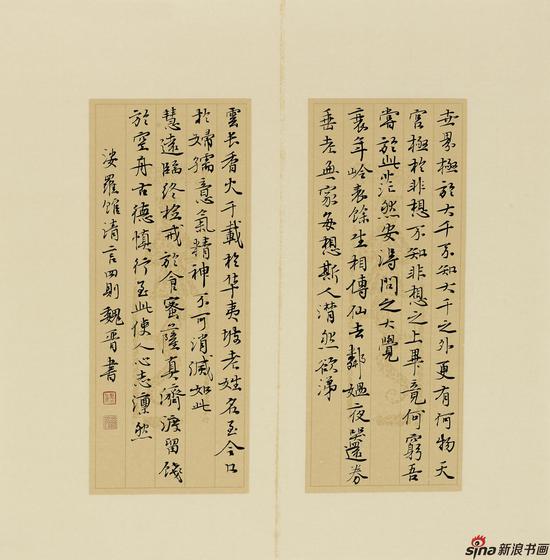 世界極於大千不知大千之外更有何物天
宮極於非想不知非想之上畢竟何窮吾
嘗於此茫然安得問之大覺
衰年岭表餘生相傳仙去鄰媼夜哭還券
垂老無家每想斯人潸然欲涕
雲长香火千載於华夷坡老姓名至今口
於婦孺意氣精神不可消滅如此
慧遠臨終檢戒於食蜜薩真濟渡留錢
於空舟古德慎行至此使人心志凜然
娑羅館清言四則魏晋書
sina新浪书画